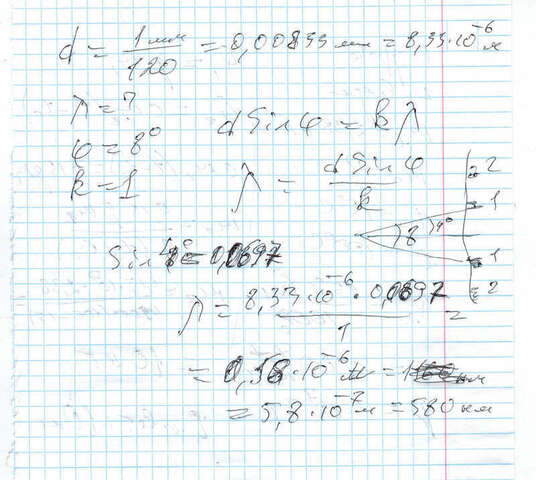 d = 1мм/120 = 0,00833 мм = 8,33·10⁻⁶ м
λ = ?
φ = 8°
d Sin φ = k λ
k = 1
λ = d Sin φ / k
2
1
8 4°
1
2
Sin 4° = 0,0697
λ = 8,33·10⁻⁶ · 0,0697 / 1 =
= 0,58·10⁻⁶ м =
= 5,8·10⁻⁷ м = 580 нм